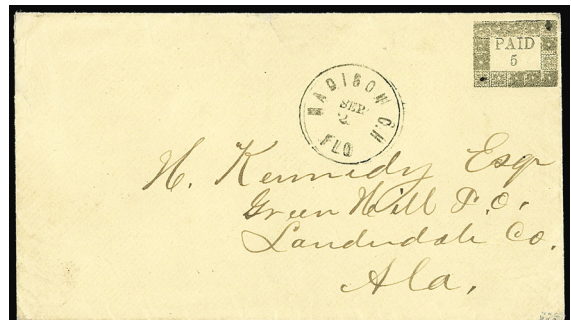 PAID
5
MADISON C.H
SEP
2
FLO
H. Kennedy Esqr
Green Hill P.O.
Lauderdale Co.
Ala,